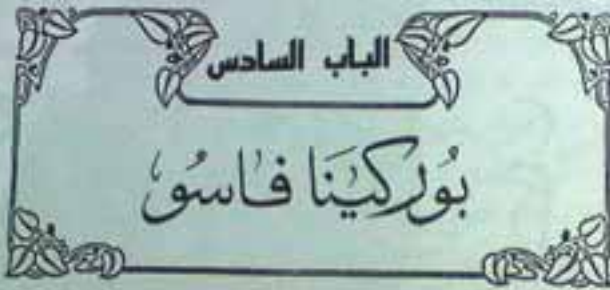 الباب السادس
بُوركينَا فاسُو